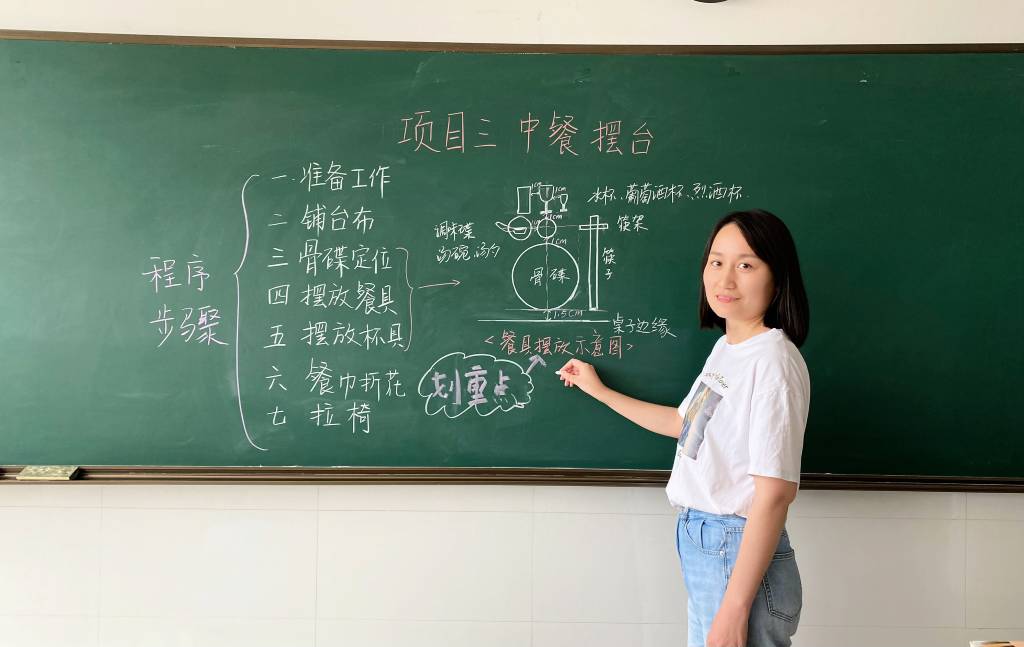 项目三 中餐摆台
程序
步骤
一.准备工作
二 铺台布
三 骨碟定位
四 摆放餐具
五 摆放杯具
六 餐巾折花
七 拉椅
水杯、葡萄酒杯、烈酒杯
调味碟
汤碗、汤勺
筷架
筷子
骨碟
1cm
1cm
1cm
1.5cm
桌子边缘
<餐具摆放示意图>
划重点